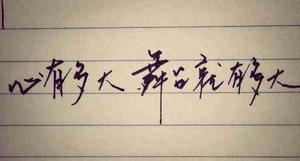 心有多大 舞台就有多大